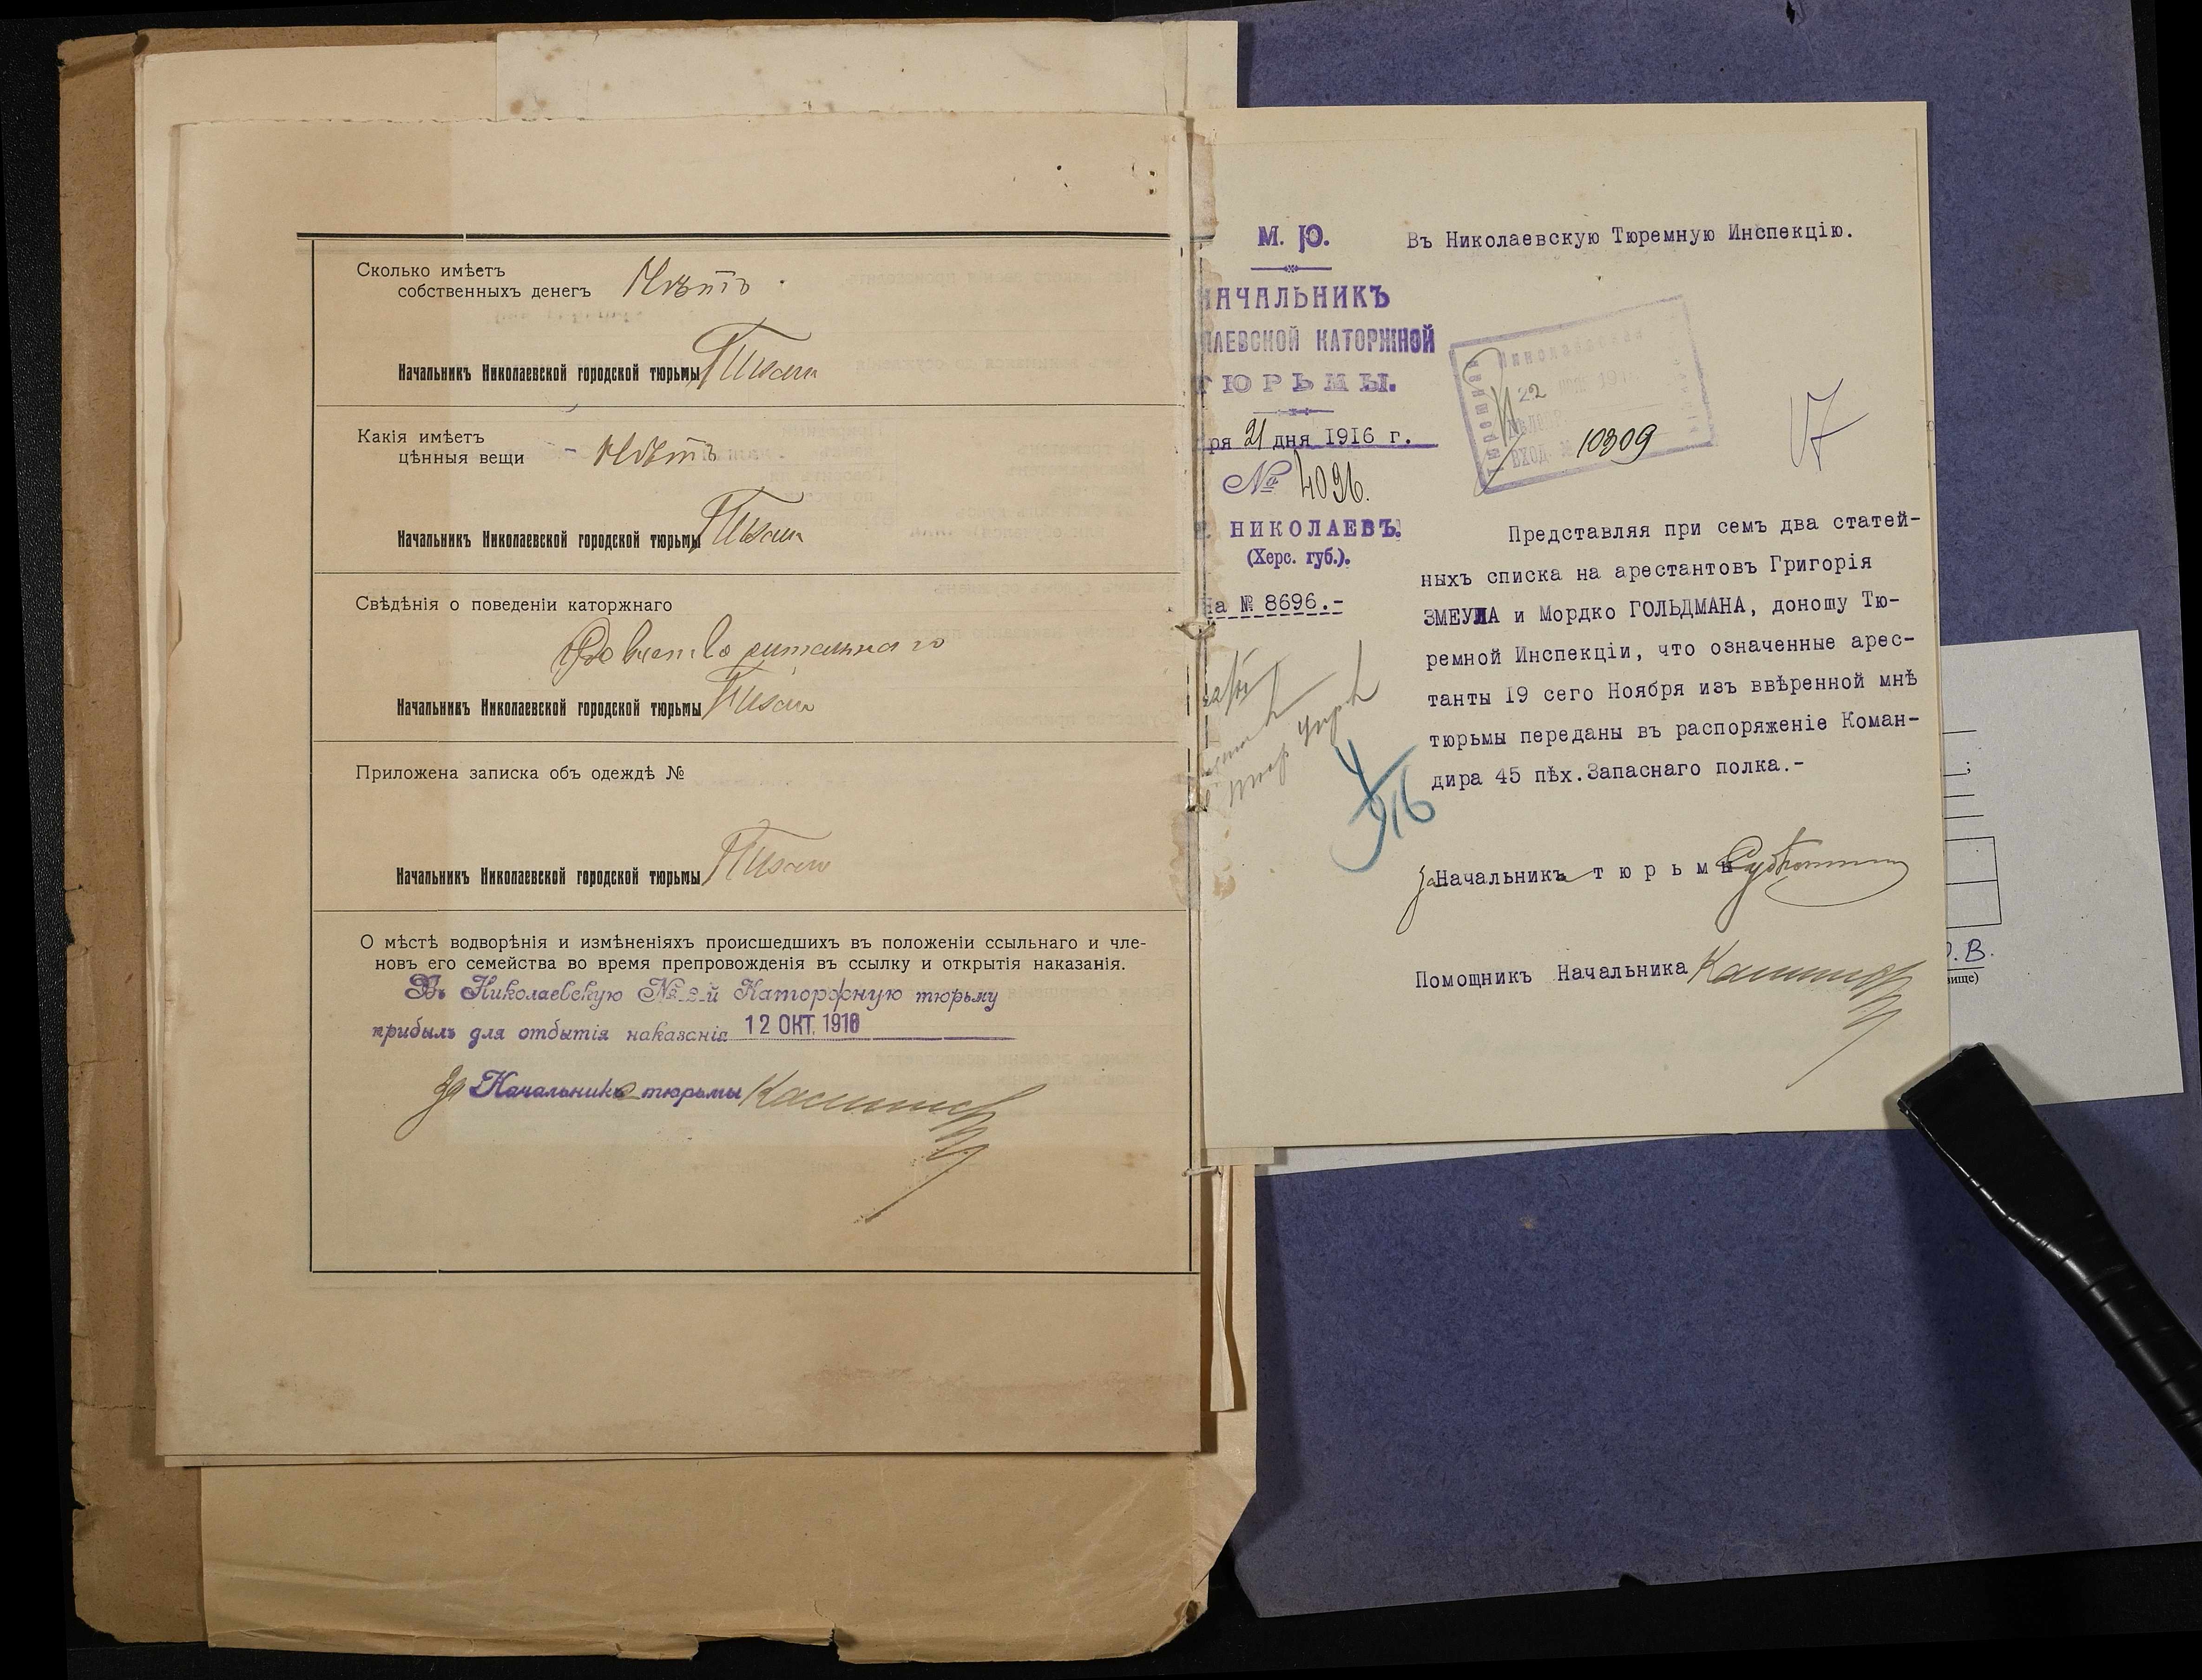 Сколько имѣетъ
собственныхъ денегъ Нѣтъ.
Начальникъ Николаевской городской тюрьмы
Какія имѣетъ
цѣнныя вещи - Нѣтъ
Начальникъ Николаевской городской тюрьмы
Свѣдѣнія о поведеніи каторжнаго
Начальникъ Николаевской городской тюрьмы
Приложена записка объ одеждѣ №
Начальникъ Николаевской городской тюрьмы
О мѣстѣ водворѣнія и измѣненіяхъ происшедшихъ въ положеніи ссыльнаго и чле-
новъ его семейства во время препровожденія въ ссылку и открытія наказанія.
Въ Николаевскую № 2-й Каторжную тюрьму
прибылъ для отбытія наказанія 12 ОКТ. 1916
За Начальника тюрьмы
М. Ю.
НАЧАЛЬНИКЪ
ЛАЕВСКОЙ КАТОРЖНОЙ
ТЮРЬМЫ.
ря 21 дня 1916 г.
№ 4096.
г. НИКОЛАЕВЪ.
(Херс. губ.).
На № 8696.-
4/XI 16
Въ Николаевскую Тюремную Инспекцію.
Николаевская
Тюремная
22
ВХОД. № 10309
17
Представляя при семъ два статей-
ныхъ списка на арестантовъ Григорія
ЗМЕУЛА и Мордко ГОЛЬДМАНА, доношу Тю-
ремной Инспекціи, что означенные арес-
танты 19 сего Ноября изъ ввѣренной мнѣ
тюрьмы переданы въ распоряженіе Коман-
дира 45 пѣх.Запаснаго полка.-
За Начальника тюрьмы
Помощникъ Начальника
О.В.